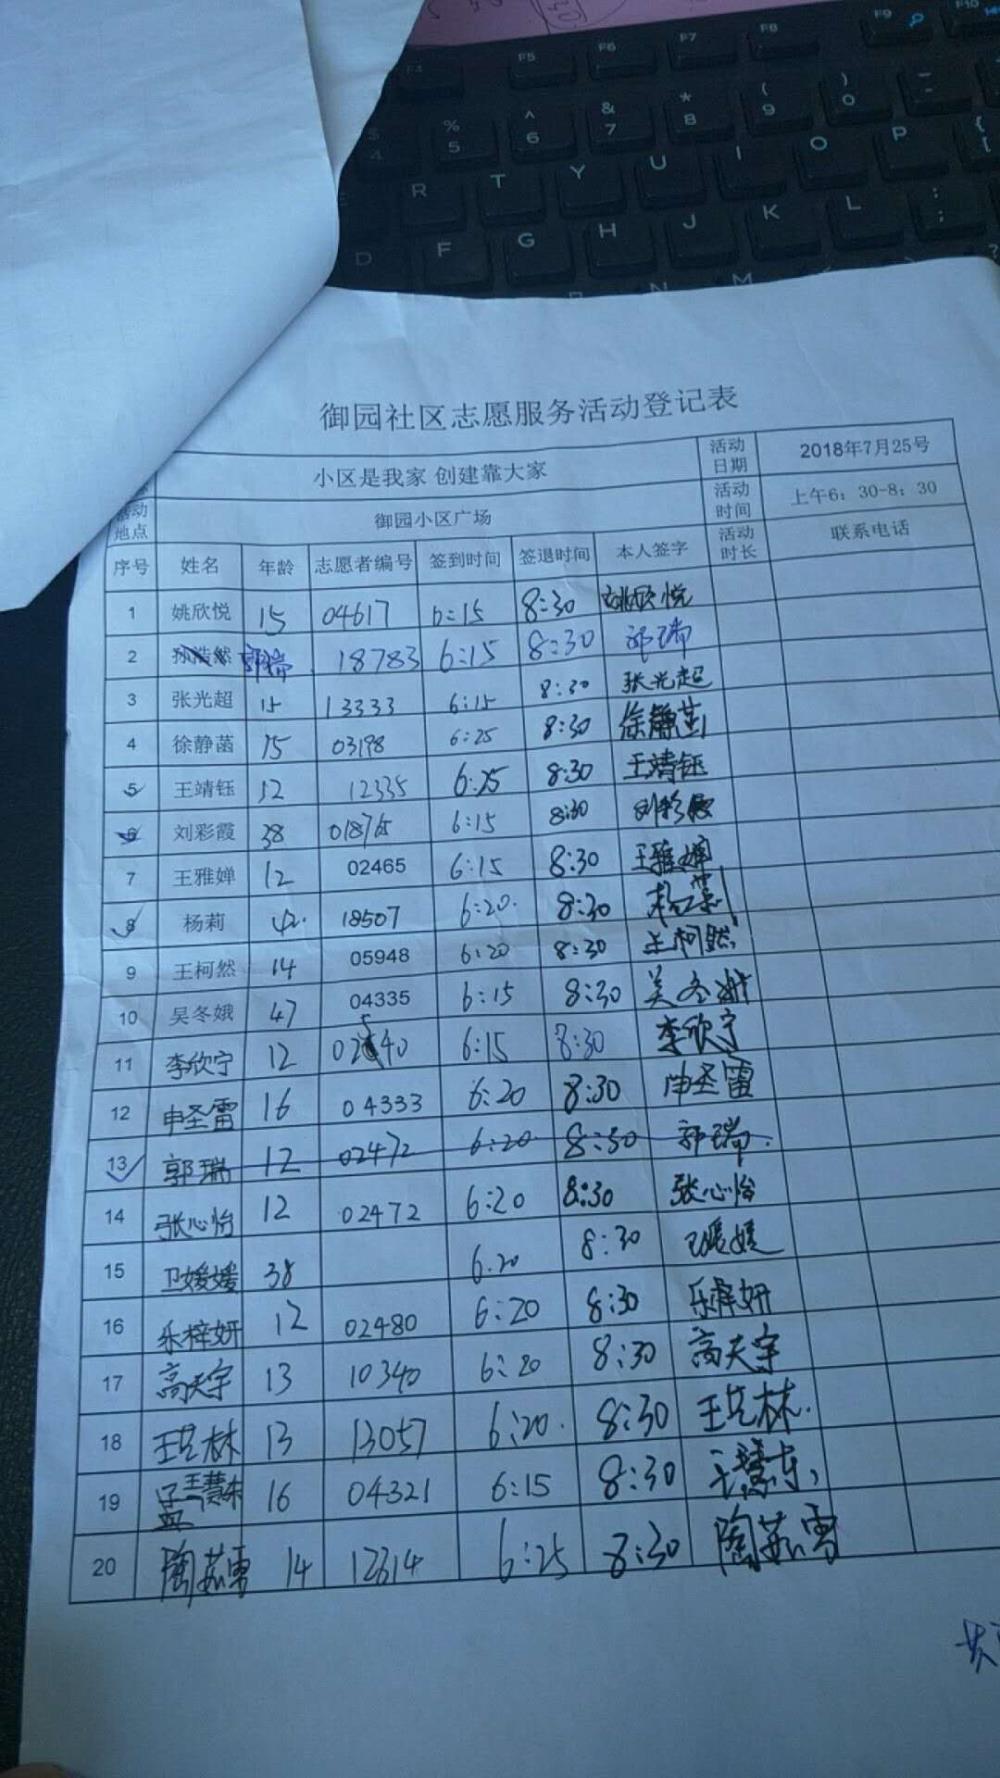 F5 F6 F7 F8 F9 F10
% 5 ^ 6 & 7 * 8 ( 9 ) 0
R T Y U I O P
D F G H J K L
N M
御园社区志愿服务活动登记表
小区是我家 创建靠大家 活动日期 2018年7月25号
活动地点 御园小区广场 活动时间 上午6：30-8：30
序号 姓名 年龄 志愿者编号 签到时间 签退时间 本人签字 活动时长 联系电话
1 姚欣悦 15 04617 6:15 8:30 姚欣悦
2 孙浩然 郭瑞 18783 6:15 8:30 郭瑞
3 张光超 15 13333 6:15 8:30 张光超
4 徐静菡 15 03198 6:25 8:30 徐静菡
5 王靖钰 12 12335 6:25 8:30 王靖钰
6 刘彩霞 38 018765 6:15 8:30 刘彩霞
7 王雅婵 12 02465 6:15 8:30 王雅婵
8 杨莉 42 18507 6:20 8:30 杨莉
9 王柯然 14 05948 6:20 8:30 王柯然
10 吴冬娥 47 04335 6:15 8:30 吴冬娥
11 李欣宁 12 02540 6:15 8:30 李欣宁
12 申圣雷 16 04333 6:20 8:30 申圣雷
13 郭瑞 12 02472 6:20 8:30 郭瑞
14 张心怡 12 02472 6:20 8:30 张心怡
15 卫媛媛 38 6:20 8:30 卫媛媛
16 乐梓妍 12 02480 6:20 8:30 乐梓妍
17 高天宇 13 10340 6:20 8:30 高天宇
18 王艺林 13 13057 6:20 8:30 王艺林
19 王慧东 16 04321 6:15 8:30 王慧东
20 陶茹雪 14 12614 6:25 8:30 陶茹雪